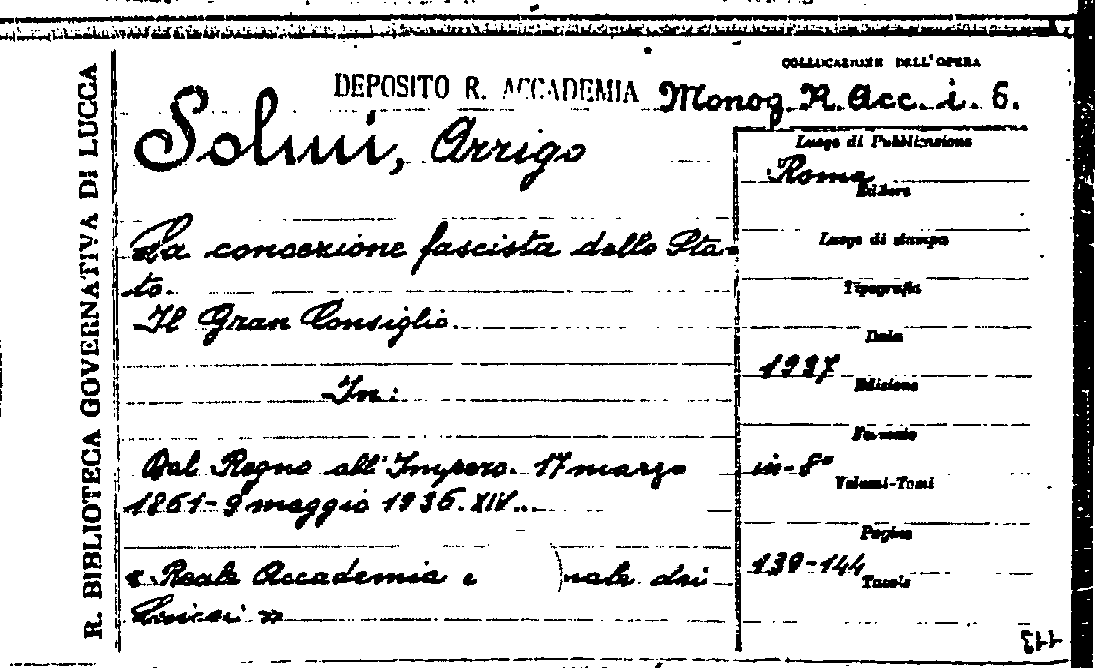 R. BIBLIOTECA GOVERNATIVA DI LUCCA
DEPOSITO R. ACCADEMIA
COLLOCAZIONE DELL'OPERA
Monog. R. Acc. i. 6.
Solmi, Arrigo
La concezione fascista dello Sta-
to.
Il Gran Consiglio.
In:
Dal Regno all'Impero. 17 marzo
1861-9 maggio 1936. XIV...
« Reale Accademia nale dei
Lincei »
Luogo di Pubblicazione
Roma
Editore
Luogo di stampa
Tipografia
Data
1937
Edizione
Formato
in-8°
Volumi-Tomi
Pagine
139-144
Tavole
113